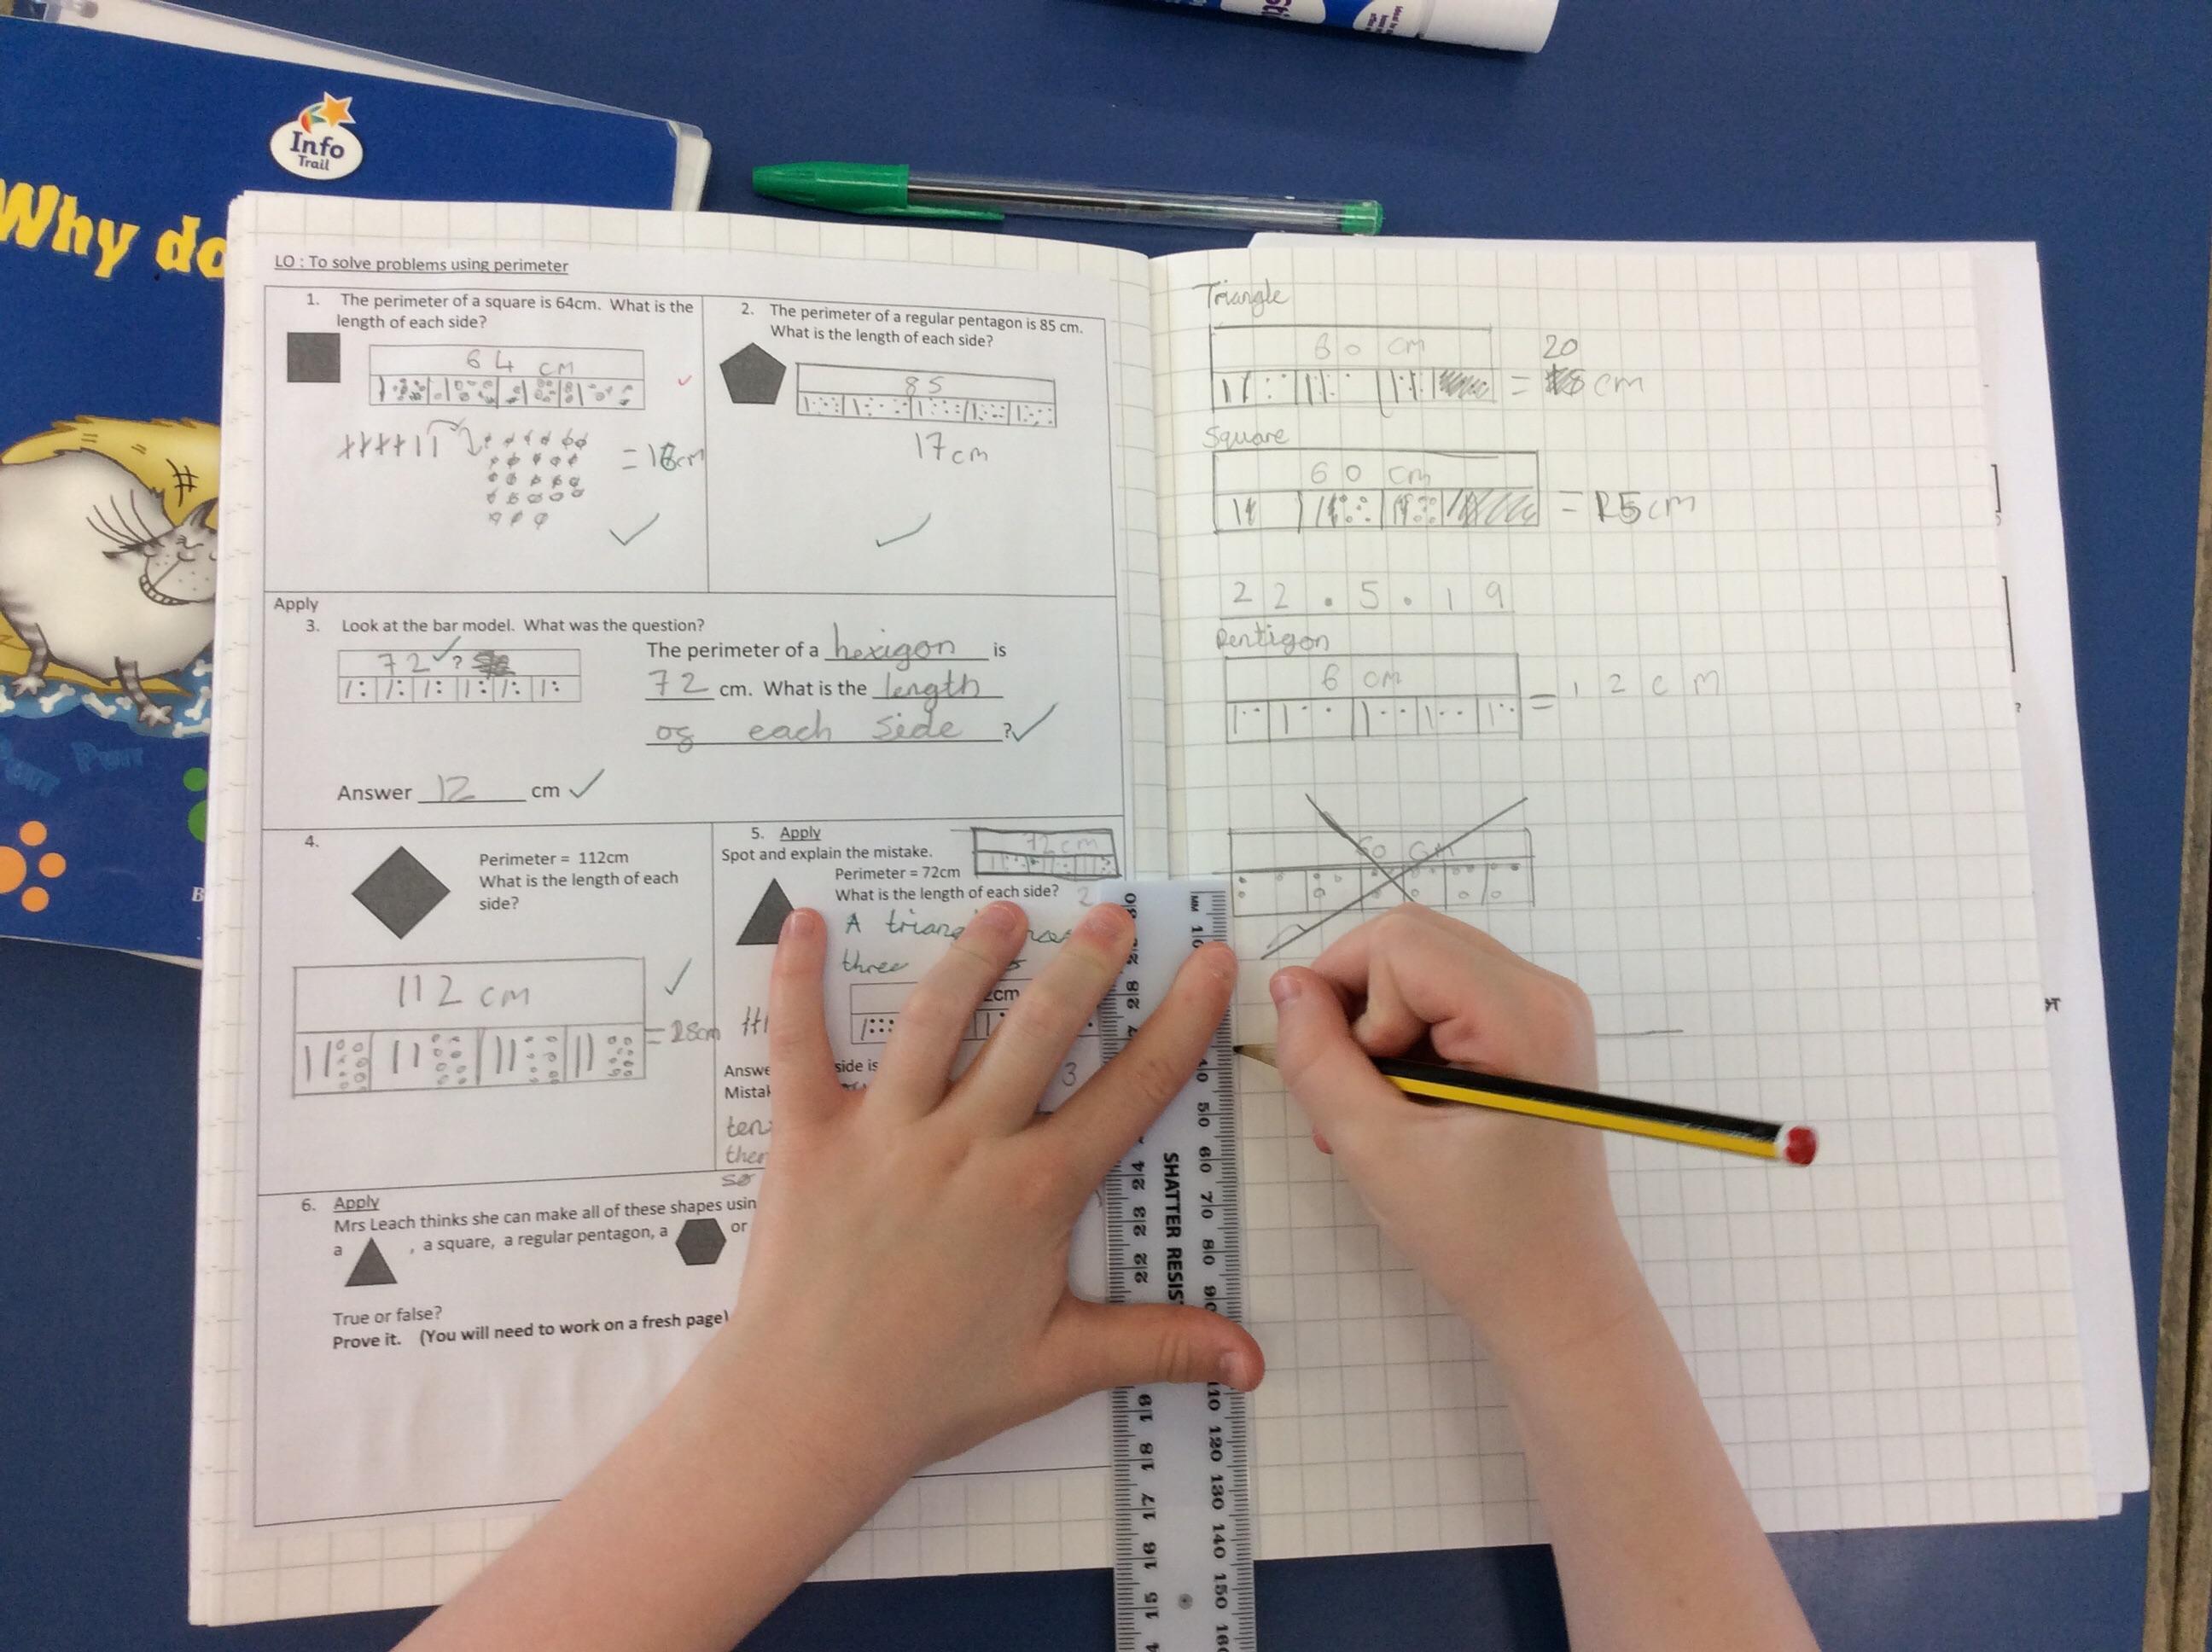 Info
Trail
Why do
Purr
LO : To solve problems using perimeter
1. The perimeter of a square is 64cm. What is the
length of each side?
64 cm
= 16cm
2. The perimeter of a regular pentagon is 85 cm.
What is the length of each side?
85
17cm
Apply
3. Look at the bar model. What was the question?
72 ?
The perimeter of a hexigon is
72 cm. What is the length
og each side ?
Answer 12 cm
4.
Perimeter = 112cm
What is the length of each
side?
112 cm
= 28cm
5. Apply
Spot and explain the mistake.
72cm
Perimeter = 72cm
What is the length of each side?
A
three
2cm
side is
3
so
6. Apply
Mrs Leach thinks she can make all of these shapes
a , a square, a regular pentagon, a or
True or false?
Prove it. (You will need to work on a fresh page)
Triangle
60 cm
20
= cm
Square
60 cm
= 15cm
22.5.19
Pentigon
6 cm
= 12cm
60 cm
MM
SHATTER
30 28 24 23 22 19 18 17 16 15
40 50 60 70 80 110 120 130 140 150